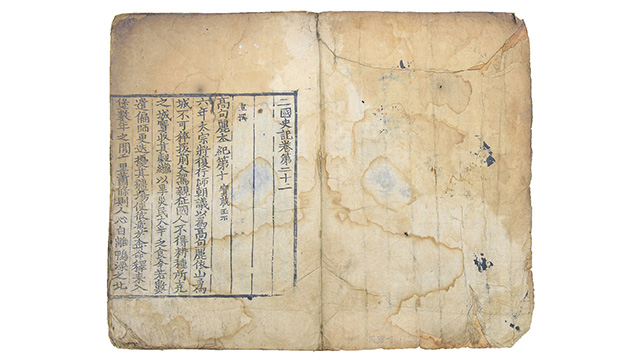 三國史記卷第二十二
宣撰
高句麗本紀第十 寶臧王下
六年太宗將復行師朝議以爲高句麗依山爲
城不可猝拔前大駕親征國人不得耕種所克
之城實收其穀繼以旱災民太半乏食今若數
遣偏師更迭擾其疆埸使彼疲於奔命釋耒入
堡數年之間千里蕭條則人心自離鴨淥之北